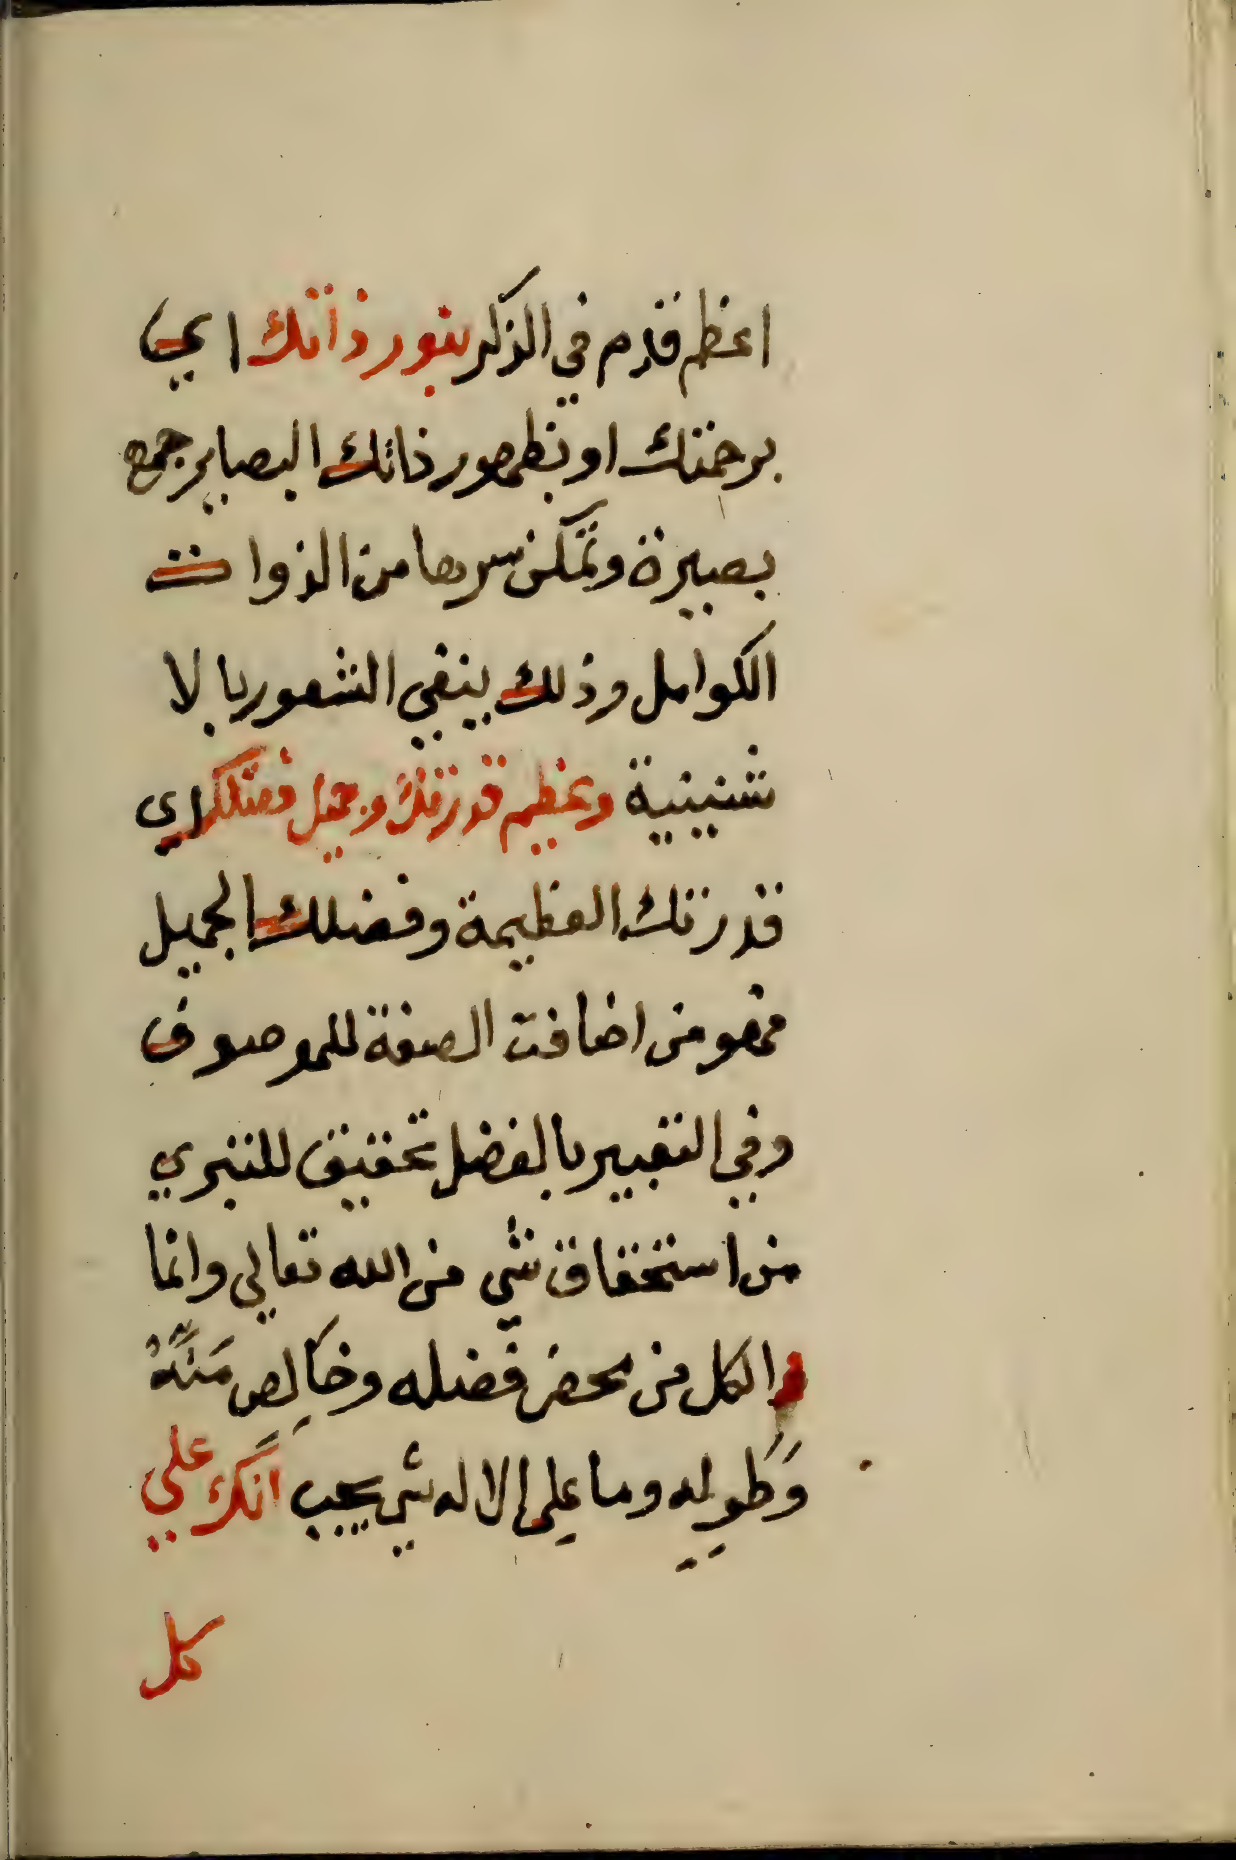 اعظم قدم في الذكر بنور ذاتك اي
برحمتك او بظهور ذاتك البصاير جمع
بصيرة وتمكن سرها من الذوات
الكوامل وذلك ينفي الشعور بالا
شنينية وبعظيم قدرتك وجميل فضلك اي
قدرتك العظيمة وفضلك الجميل
فهو من اضافت الصفة للموصوف
وفي التعبير بالفضل تحقيق للتبري
من استحقاق شي من الله تعالى وانما
والكل من محض فضله وخالِص مَنِّهُ
وَطَولِهِ وما على الاله شي يجب انك علي
كل